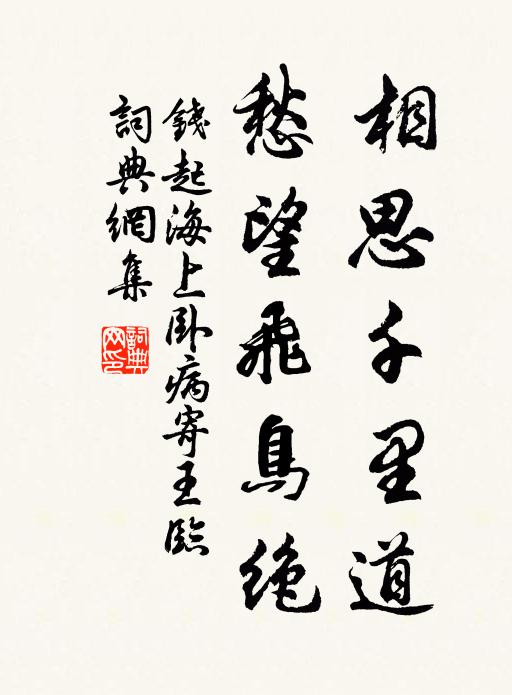 相思千里道
愁望飛鳥絶
錢起海上卧病寄王臨
詞典網集
詞典网印